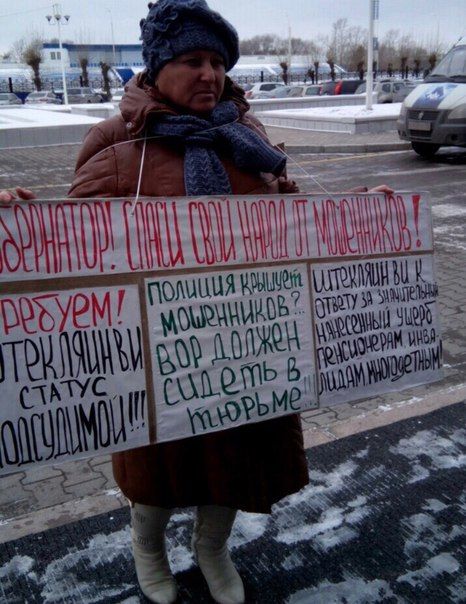 УБЕРНАТОР! СПАСИ СВОЙ НАРОД ОТ МОШЕННИКОВ!
РЕБУЕМ!
ТЕКЛЯИН В.И
СТАТУС
ПОДСУДИМОЙ!!!
ПОЛИЦИЯ КРЫШУЕТ
МОШЕННИКОВ?..
ВОР ДОЛЖЕН
СИДЕТЬ В
ТЮРЬМЕ!
ШТЕКЛЯИН В И К
ОТВЕТУ ЗА ЗНАЧИТЕЛЬН
НАНЕСЕННЫЙ УЩЕРБ
ПЕНСИОНЕРАМ ИНВА-
ЛИДАМ, МНОГОДЕТНЫМ!